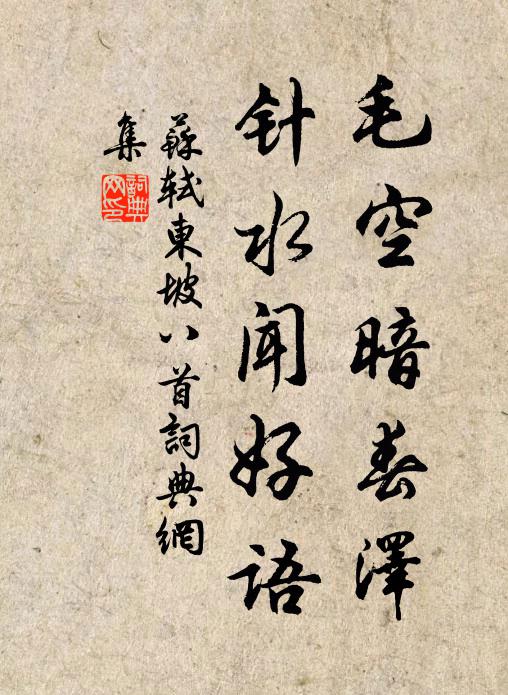 毛空暗春澤
针水闻好语
蘇軾東坡八首詞典網
集
詞典
网印